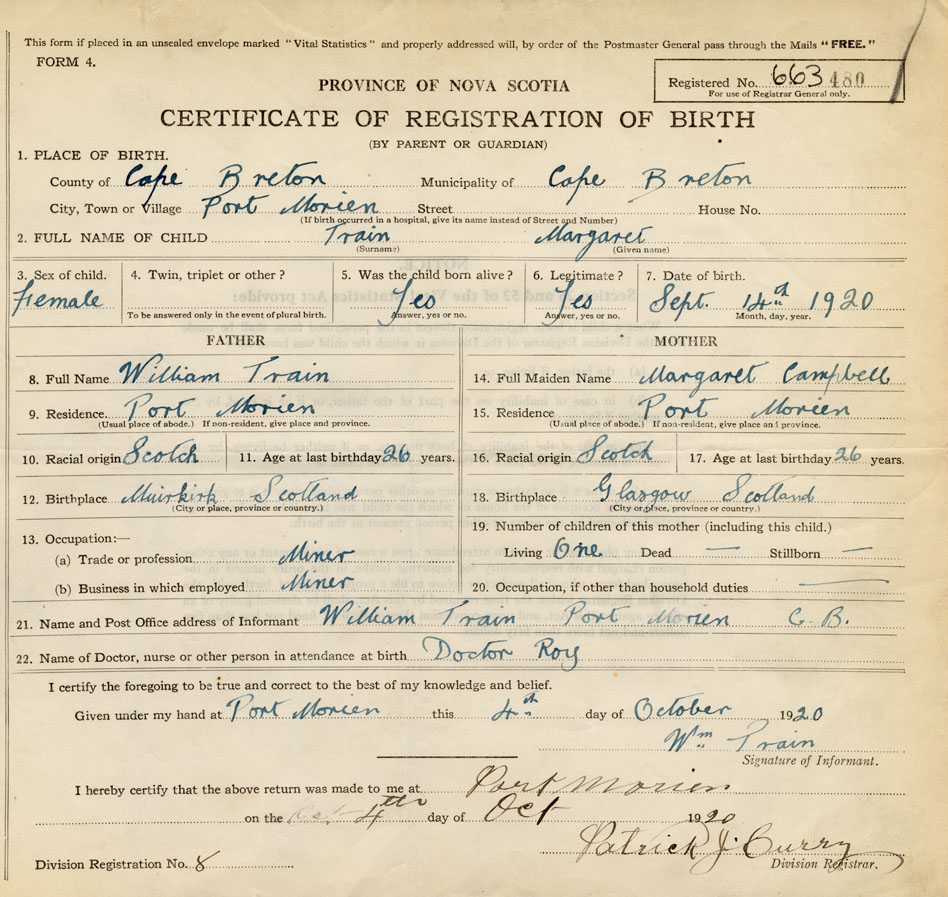 This form if placed in an unsealed envelope marked "Vital Statistics" and properly addressed will, by order of the Postmaster General pass through the Mails "FREE."
FORM 4.
Registered No. 663 480
For use of Registrar General only.
PROVINCE OF NOVA SCOTIA
CERTIFICATE OF REGISTRATION OF BIRTH
(BY PARENT OR GUARDIAN)
1. PLACE OF BIRTH.
County of Cape Breton Municipality of Cape Breton
City, Town or Village Port Morien Street House No.
(If birth occurred in a hospital, give its name instead of Street and Number)
2. FULL NAME OF CHILD Train Margaret
(Surname) (Given name)
3. Sex of child. 4. Twin, triplet or other? 5. Was the child born alive? 6. Legitimate? 7. Date of birth.
Female Yes Yes Sept. 14th 1920
To be answered only in the event of plural birth. Answer, yes or no. Answer, yes or no. Month, day, year.
FATHER MOTHER
8. Full Name William Train 14. Full Maiden Name Margaret Campbell
9. Residence. Port Morien 15. Residence Port Morien
(Usual place of abode.) If non-resident, give place and province. (Usual place of abode.) If non-resident, give place and province.
10. Racial origin Scotch 11. Age at last birthday 26 years. 16. Racial origin Scotch 17. Age at last birthday 26 years.
12. Birthplace Muirkirk Scotland 18. Birthplace Glasgow Scotland
(City or place, province or country.) (City or place, province or country.)
19. Number of children of this mother (including this child.)
13. Occupation:—
(a) Trade or profession Miner Living One Dead — Stillborn —
(b) Business in which employed Miner 20. Occupation, if other than household duties —
21. Name and Post Office address of Informant William Train Port Morien C. B.
22. Name of Doctor, nurse or other person in attendance at birth Doctor Roy
I certify the foregoing to be true and correct to the best of my knowledge and belief.
Given under my hand at Port Morien this 4th day of October 1920
Wm Train
Signature of Informant.
I hereby certify that the above return was made to me at Port Morien
on the Oct 4th day of Oct 1920
Patrick J. Curry
Division Registration No. 8 Division Registrar.